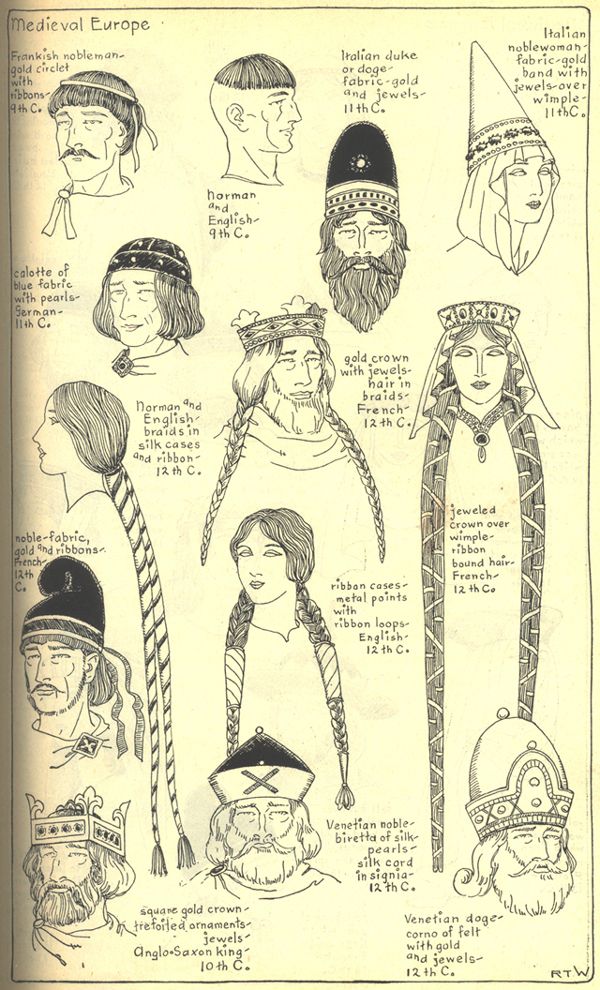 Medieval Europe
Frankish nobleman-
gold circlet
with
ribbons-
9th C.
Norman
and
English-
9th C.
Italian duke
or doge-
fabric-gold
and jewels-
11th C.
Italian
noblewoman-
fabric-gold
band with
jewels-over
wimple-
11th C.
calotte of
blue fabric
with pearls-
German-
11th C.
gold crown
with jewels-
hair in
braids-
French-
12th C.
Norman and
English-
braids in
silk cases
and ribbon-
12th C.
jeweled
crown over
wimple-
ribbon
bound hair-
French-
12th C.
noble-fabric,
gold and ribbons-
French-
12th
C.
ribbon cases-
metal points
with
ribbon loops-
English-
12th C.
Venetian noble-
biretta of silk-
pearls-
silk cord
insignia-
12th C.
square gold crown-
trefoiled ornaments-
jewels-
Anglo-Saxon king-
10th C.
Venetian doge-
corno of felt
with gold
and jewels-
12th C.
RTW